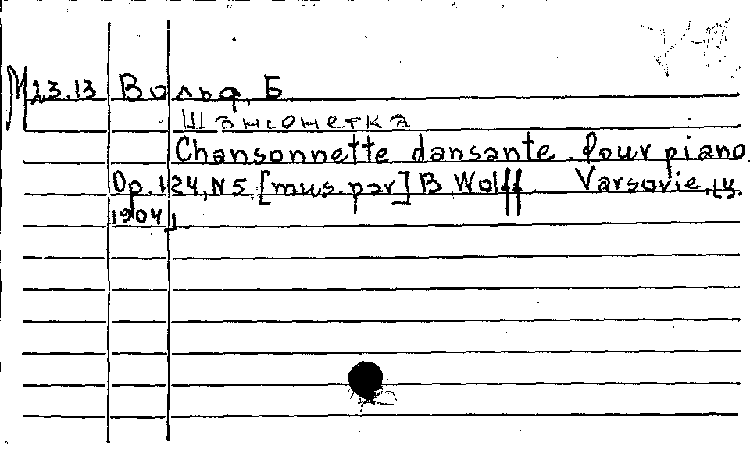 М23.13 Вольф, Б
Шансонетка
Chansonnette dansante pour piano
Op. 124, N 5 [mus. par] B Wolff Varsovie,
1904